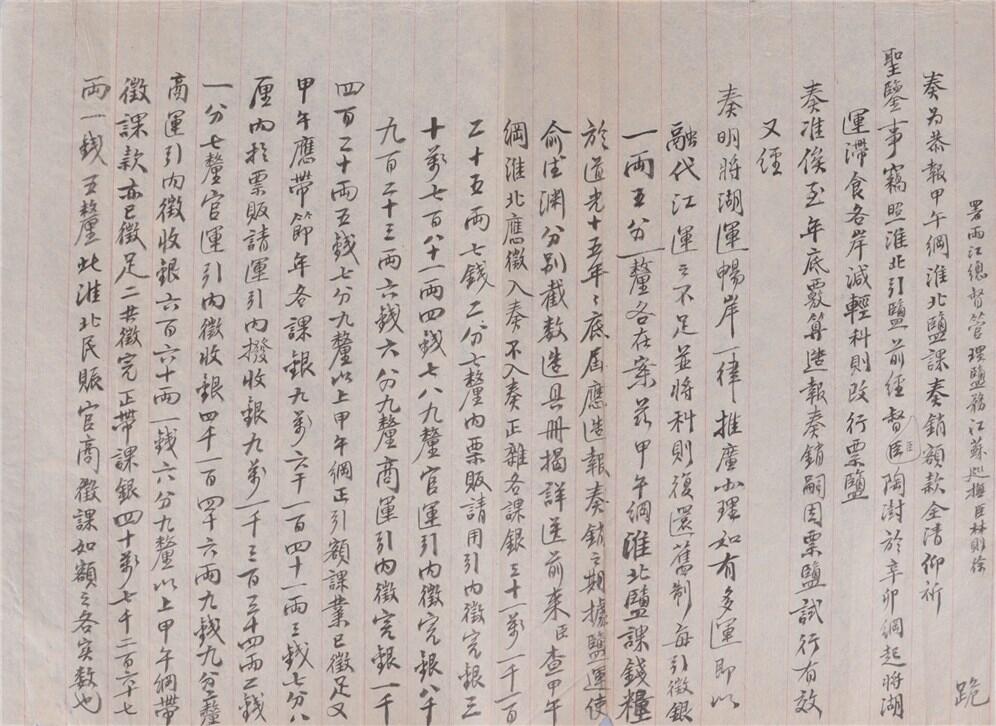 署兩江總督管理鹽務江蘇巡撫臣林則徐
跪
奏為恭報甲午綱淮北鹽課奏銷額款全清仰祈
聖鑒事竊照淮北引鹽前經督臣陶澍於辛卯綱起將湖
運滯食各岸減輕科則改行票鹽
奏准俟至年底覈算造報奏銷嗣因票鹽試行有效
又經
奏明將湖運暢岸一律推廣办理如有多運即以
融代江運之不足並將科則復還舊制每引徵銀
一兩五分一釐各在案茲甲午綱淮北鹽課錢糧
於道光十五年年底屆應造報奏銷之期據鹽運使
俞德渊分別截数造具冊揭詳送前來臣查甲午
綱淮北應徵入奏不入奏正雜各課銀三十一萬一千一百
二十五兩七錢二分七釐內票販請用引內徵完銀三
十萬七百八十一兩四錢七分九釐官運引內徵完銀八千
九百二十三兩六錢六分九釐商運引內徵完銀一千
四百二十兩五錢七分九釐以上甲午綱正引額課業已徵足又
甲午應帶節年各課銀九萬六千一百四十一兩三錢七分八
厘內於票販請運引內撥收銀九萬一千三百三十四兩二錢
一分七釐官運引內徵收銀四千一百四十六兩九錢九分二釐
商運引內徵收銀六百六十兩一錢六分九釐以上甲午綱帶
徵課款亦已徵足二共徵完正帶課銀四十萬七千二百六十七
兩一錢五釐此淮北民販官商徵課如額之各实数也